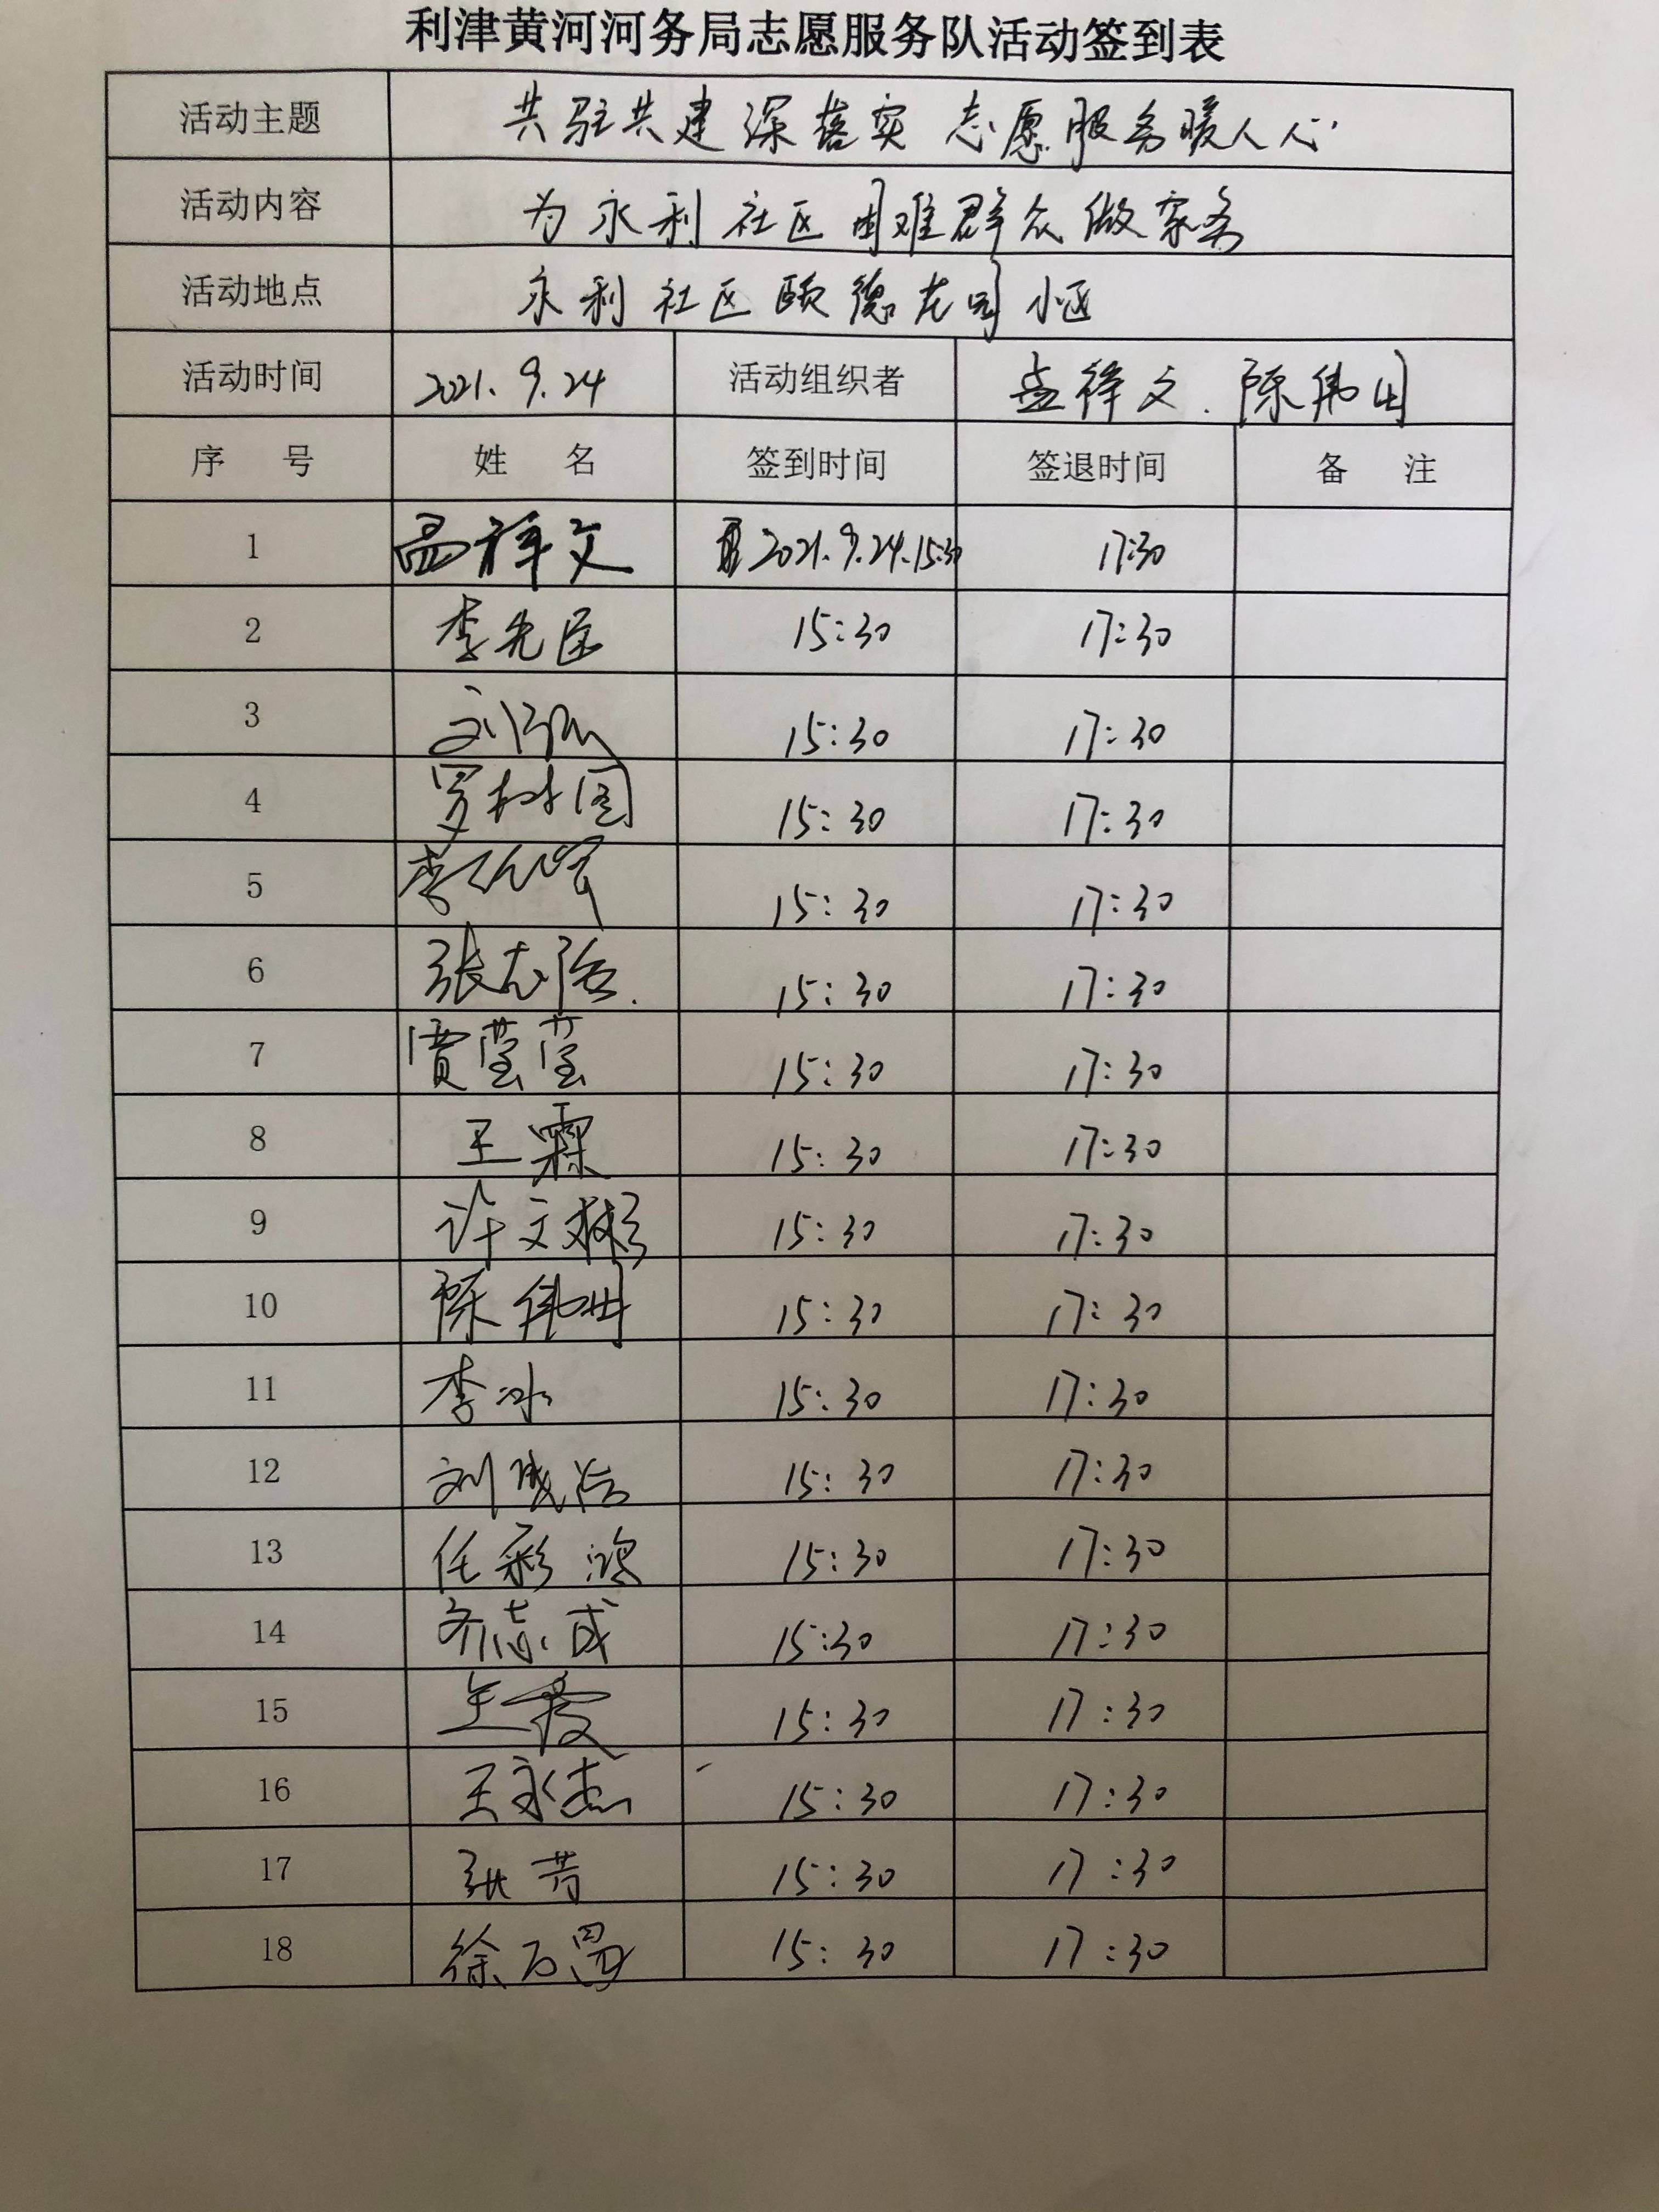 利津黄河河务局志愿服务队活动签到表
活动主题 共驻共建深落实 志愿服务暖人心
活动内容 为永利社区困难群众做家务
活动地点 永利社区颐德花园小区
活动时间 2021.9.24 活动组织者 孟祥文、陈伟
序号 姓名 签到时间 签退时间 备注
1 孟祥文 2021.9.24.15:30 17:30
2 李先 15:30 17:30
3 刘 15:30 17:30
4 罗树国 15:30 17:30
5 李 15:30 17:30
6 张志浩 15:30 17:30
7 贾莹莹 15:30 17:30
8 王霖 15:30 17:30
9 许文彬 15:30 17:30
10 陈伟 15:30 17:30
11 李冰 15:30 17:30
12 刘成浩 15:30 17:30
13 任彩鸿 15:30 17:30
14 齐志成 15:30 17:30
15 王 15:30 17:30
16 王永杰 15:30 17:30
17 张芳 15:30 17:30
18 徐万昌 15:30 17:30